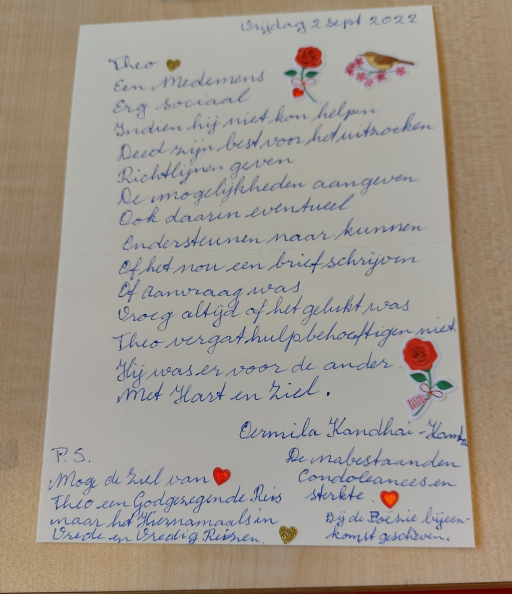 Vrijdag 2 sept. 2022
Theo
Een Medemens
Erg sociaal
Indien hij niet kon helpen
Deed zijn best voor het uitzoeken
Richtlijnen geven
De mogelijkheden aangeven
Ook daarin eventueel
Ondersteunen naar kunnen
Of het nou een brief schrijven
Of aanvraag was
Vroeg altijd of het gelukt was
Theo vergat hulpbehoeftigen niet
Hij was er voor de ander
Met Hart en Ziel.
Oermila Kandhai-
P.S.
Moge de Ziel van
Theo een Godgezegende Reis
maar het Hiernamaals in
Vrede en Vredig Reisnen.
De nabestaanden
Condoleances en
sterkte.
Bij de Poësie bijeen-
komst geschreven.